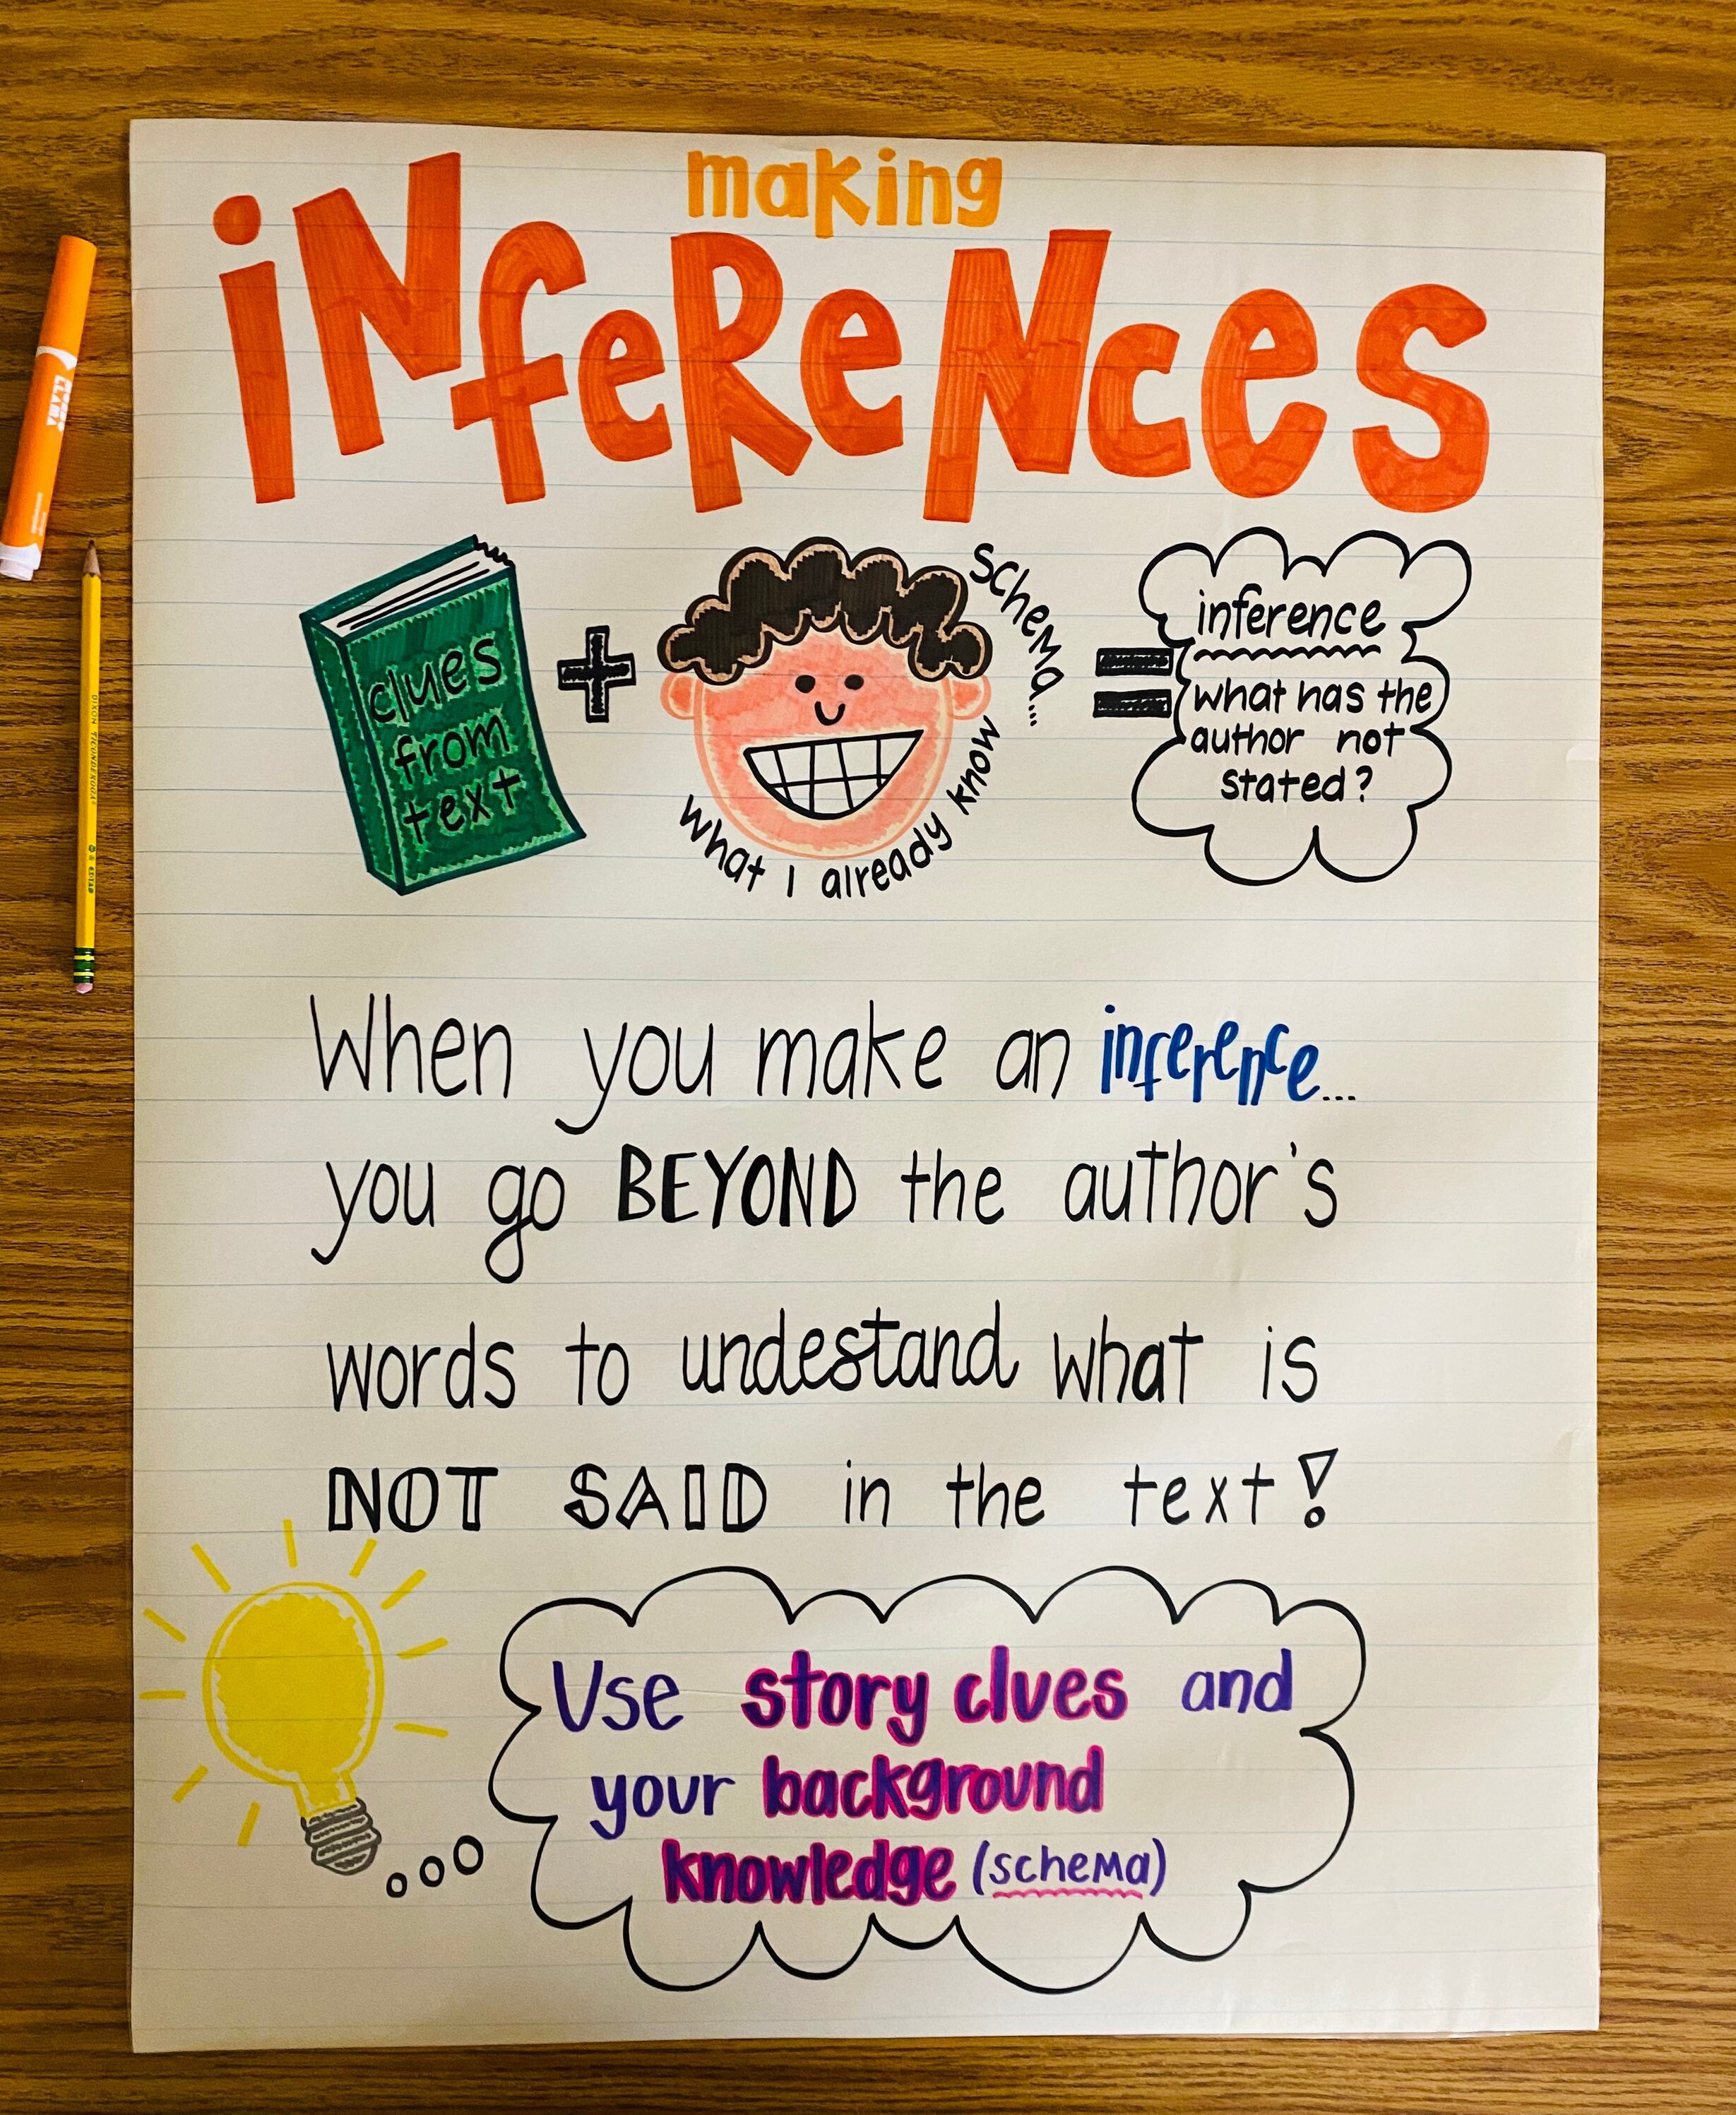 making
iNfeReNces
clues
from
text
+
schema...
what I already know
=
inference
what has the
author not
stated?
When you make an inference...
you go BEYOND the author's
words to undestand what is
NOT SAID in the text!
Use story clues and
your background
knowledge (schema)
DIXON TICONDEROGA